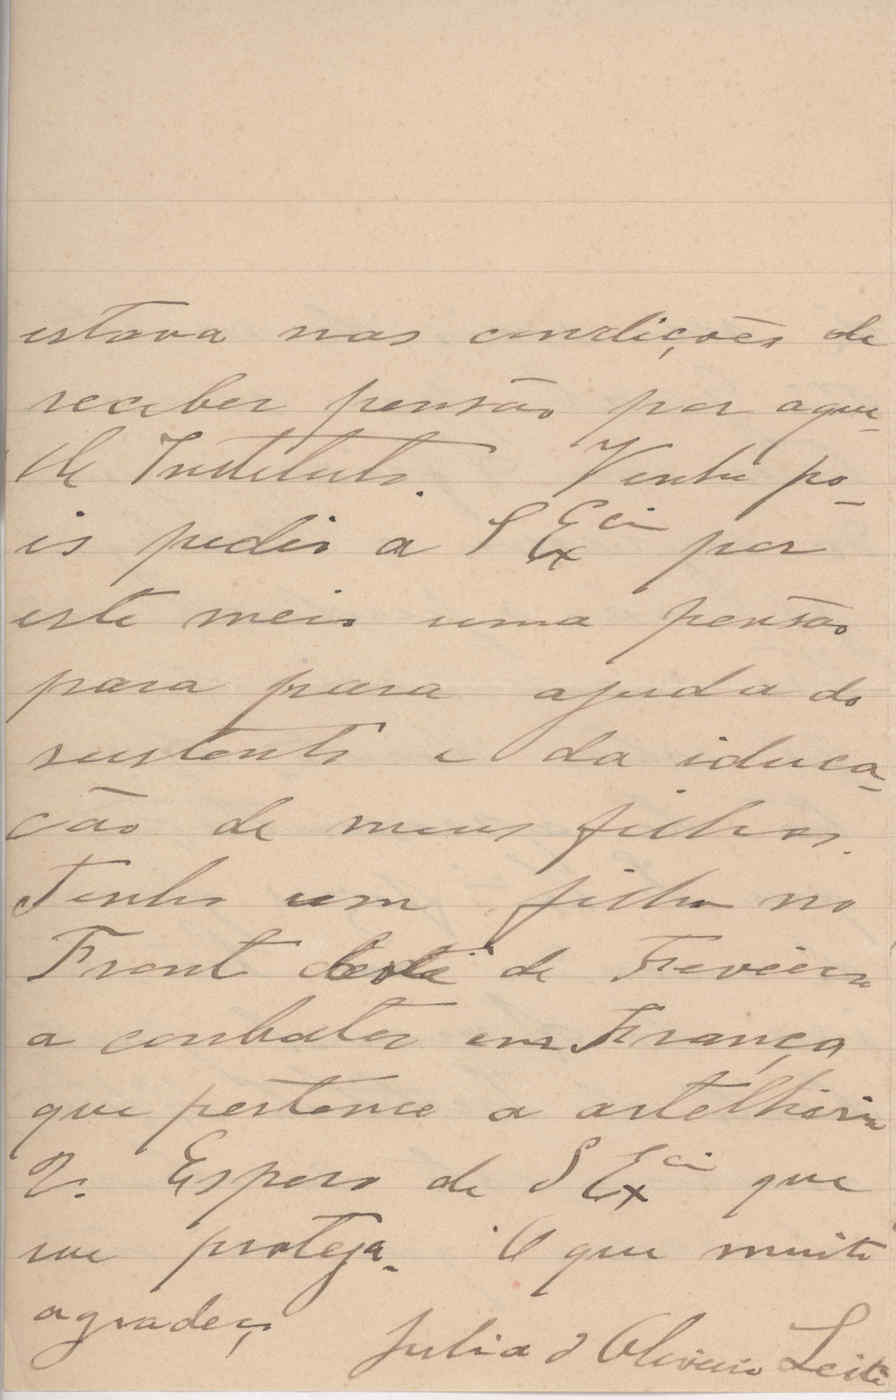 estava nas condições de
receber pensão por aque-
le Instituto. Venho po-
is pedir a S Ex.cia por
este meio uma pensão
para para ajuda do
sustento e da iduca-
ção de meus filhos.
Tenho um filho no
Front de Fevereiro
a conbater em França
que pertence a artelharia
2. Espero de S Ex.cia que
me proteja. O que muito
agradeço
Julia d'Oliveira Leite